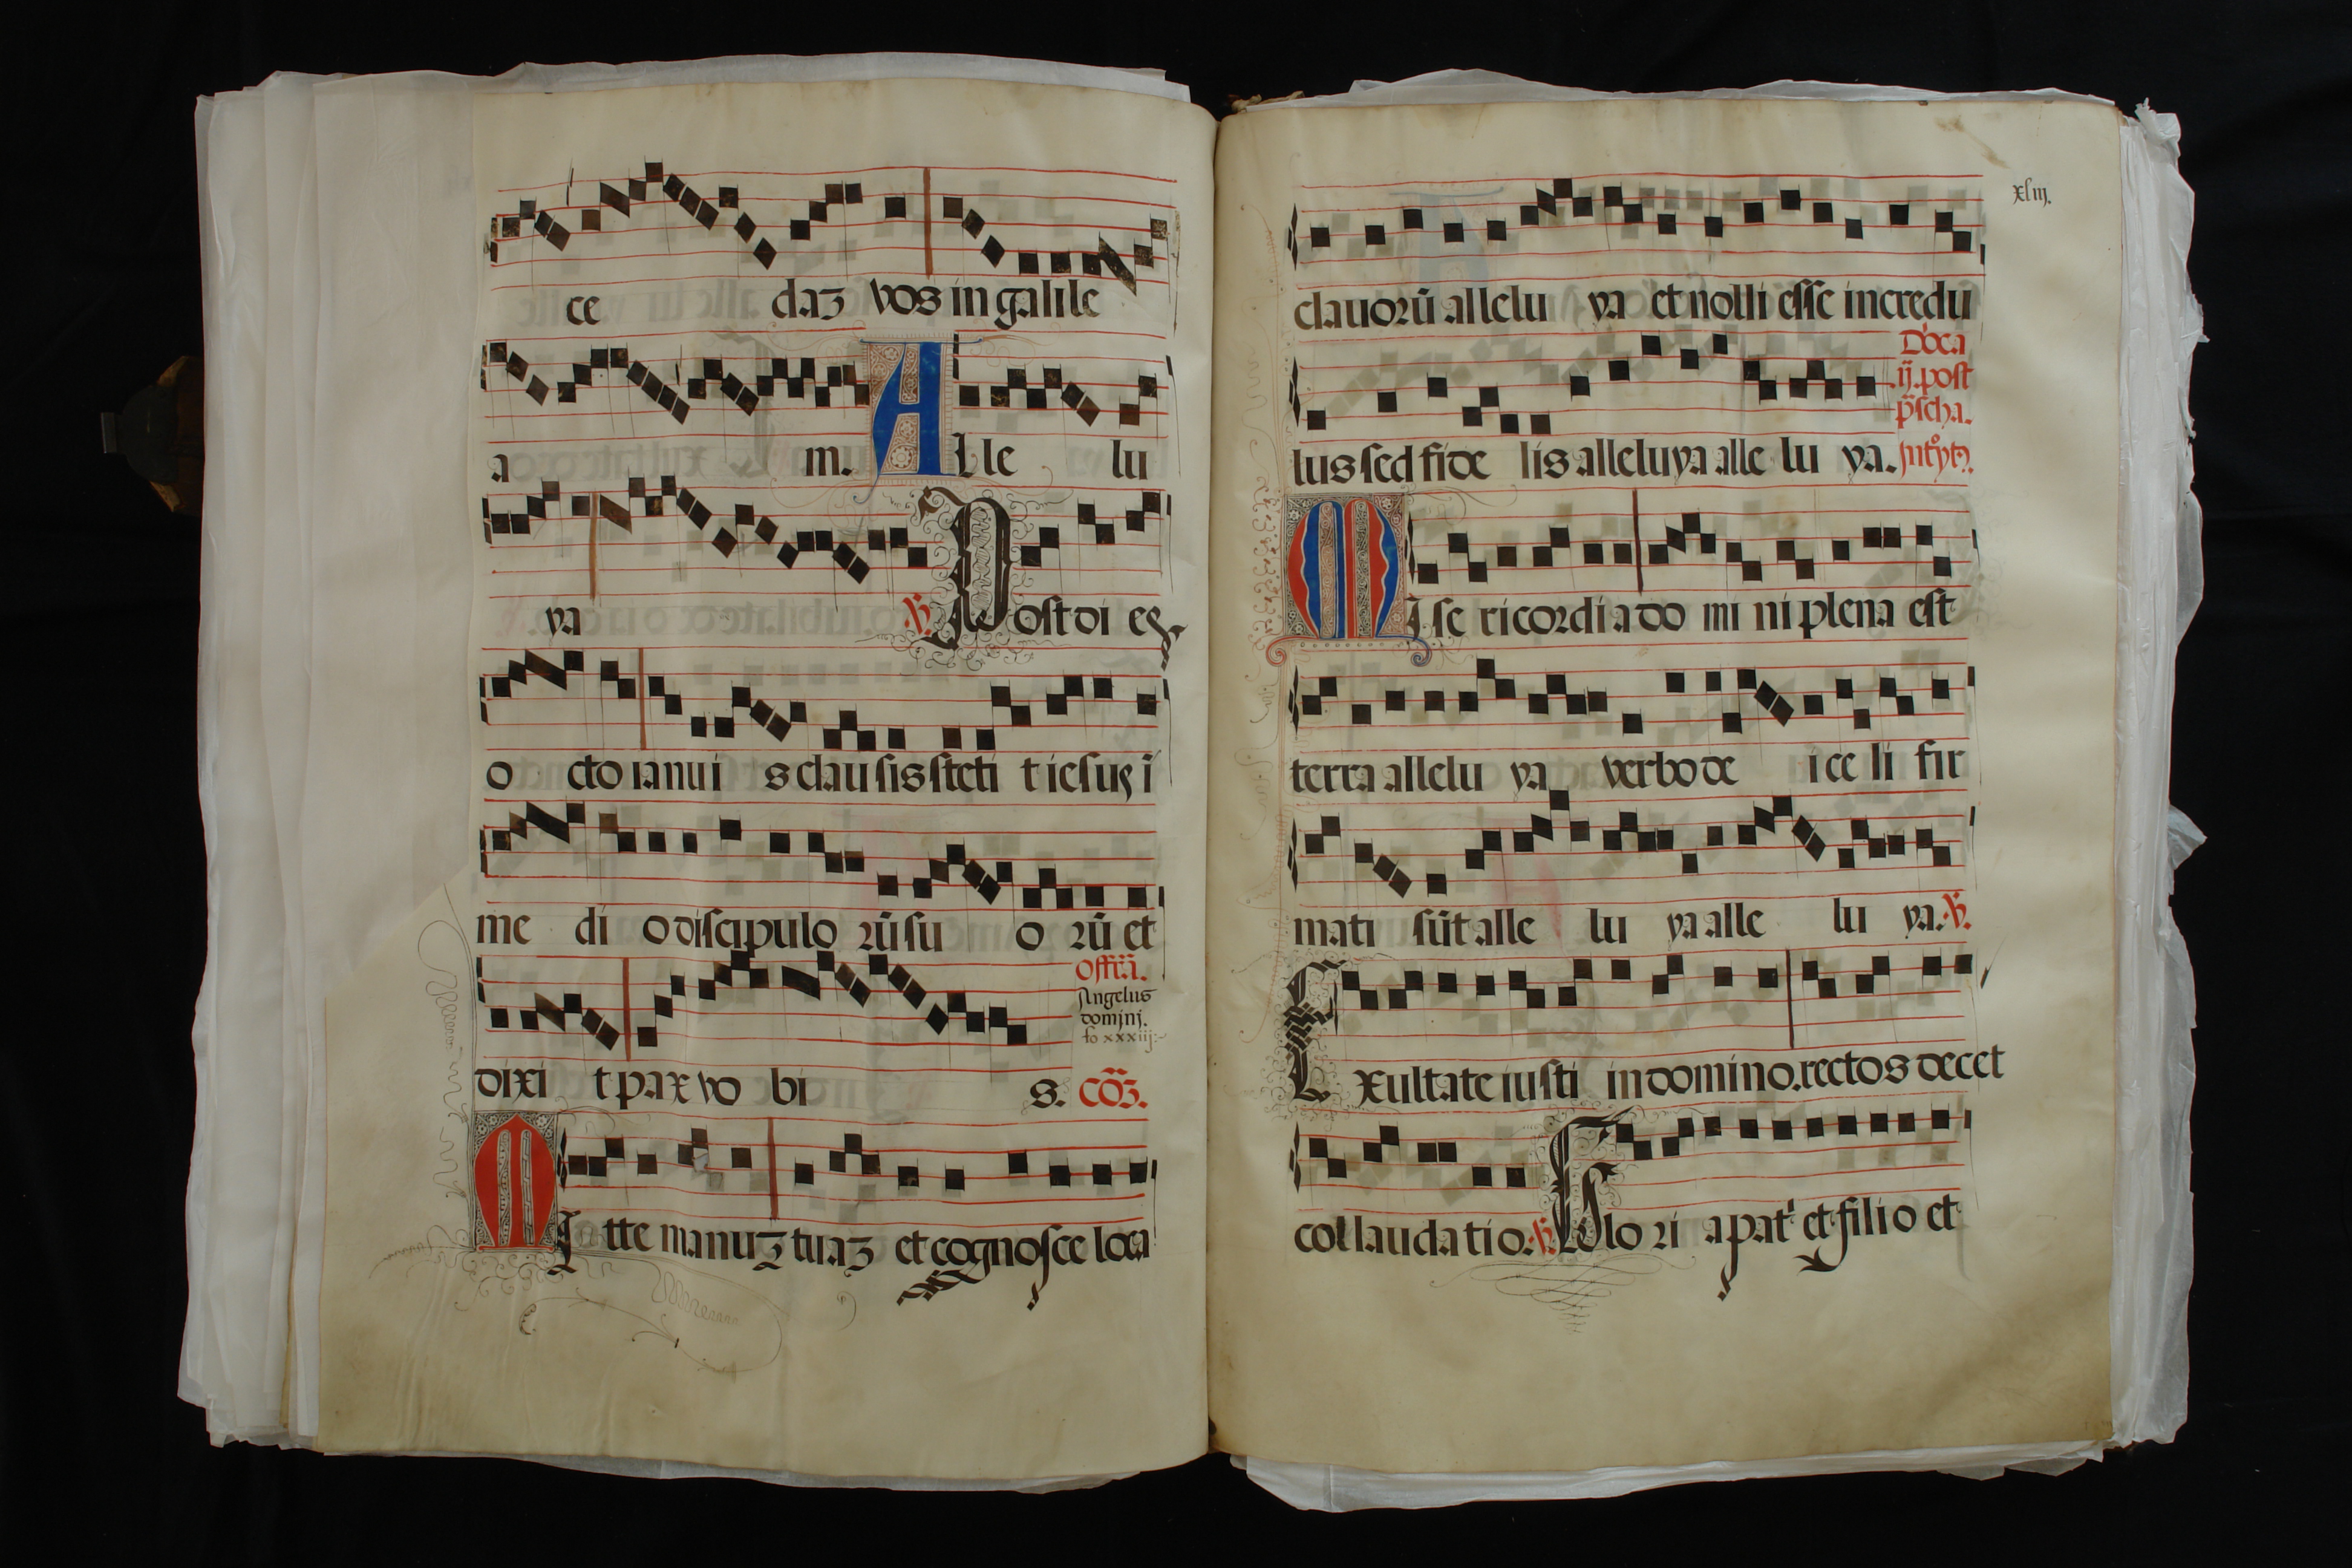 ce daꝫ vos in galile
a m. Alle lu
ya ℣. Post di eꝫ
o cto ianui s clau sis steti t iesus ī
me di o discipulo rū su o rū et
Offr̄ā.
Angelus
domini.
fo xxxiij
dixi t pax vo bi s. Cōꝫ.
Mi tte manuꝫ tuaꝫ et cognosce loca
xliij.
clauorū allelu ya et nolli esse incredu
Dōca
ij. post
p̄scha.
lus sed fide lis alleluya alle lu ya. Introytꝰ.
Mise ricordia do mi ni plena est
terra allelu ya verbo de i ce li fir
mati sūt alle lu ya alle lu ya. ℣.
Exultate iusti in domino. rectos decet
collaudatio. ℣. Glo ri a pat' et filio et